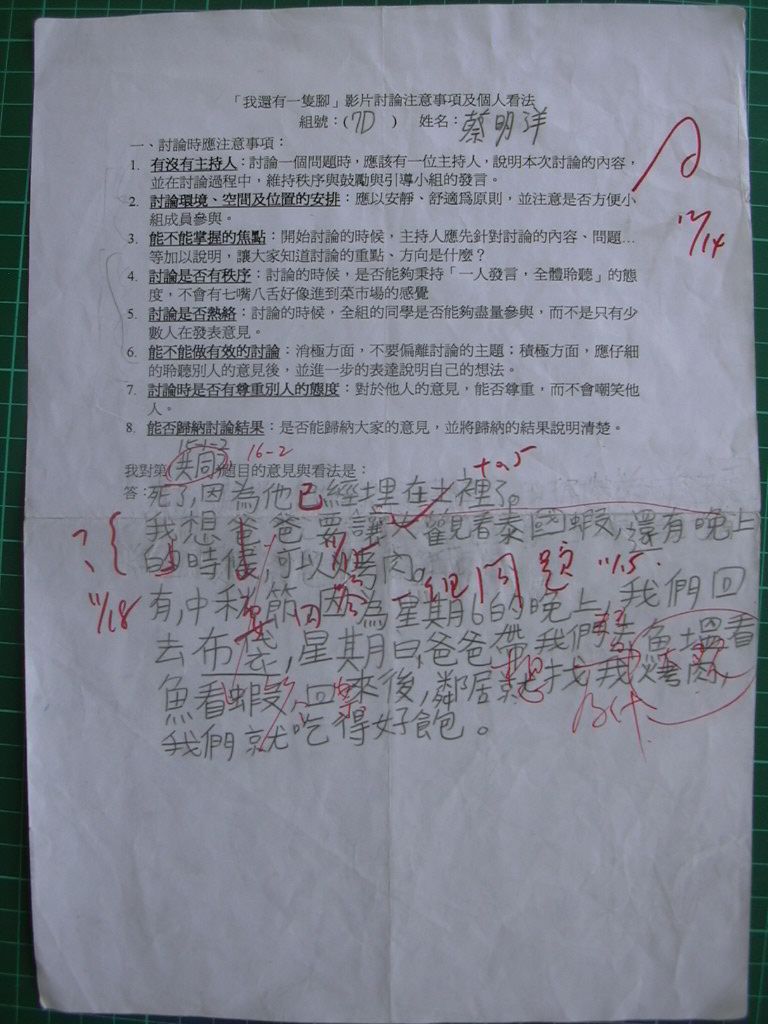 「我還有一隻腳」影片討論注意事項及個人看法
組號：(7D ) 姓名：蔡明洋
一、討論時應注意事項：
1. 有沒有主持人：討論一個問題時，應該有一位主持人，說明本次討論的內容，
並在討論過程中，維持秩序與鼓勵與引導小組的發言。
12/14
2. 討論環境、空間及位置的安排：應以安靜、舒適為原則，並注意是否方便小
組成員參與。
3. 能不能掌握的焦點：開始討論的時候，主持人應先針對討論的內容、問題…
等加以說明，讓大家知道討論的重點、方向是什麼？
4. 討論是否有秩序：討論的時候，是否能夠秉持「一人發言，全體聆聽」的態
度，不會有七嘴八舌好像進到菜市場的感覺
5. 討論是否熱絡：討論的時候，全組的同學是否能夠盡量參與，而不是只有少
數人在發表意見。
6. 能不能做有效的討論：消極方面，不要偏離討論的主題；積極方面，應仔細
的聆聽別人的意見後，並進一步的表達說明自己的想法。
7. 討論時是否有尊重別人的態度：對於他人的意見，能否尊重，而不會嘲笑他
人。
8. 能否歸納討論結果：是否能歸納大家的意見，並將歸納的結果說明清楚。
15-1-2 16-2
我對第(共同)題目的意見與看法是：
答：死了，因為他已經埋在土裡了。
我想爸爸要讓大觀看泰國蝦，還有晚上
的時候，可以烤肉。
一個問題 11/15
11/18
有，中秋節，因為星期6的晚上，我們回
去布袋，星期日，爸爸帶我們去魚塭看
魚看蝦，回來後，鄰居就找我烤肉，
我們就吃得好飽。